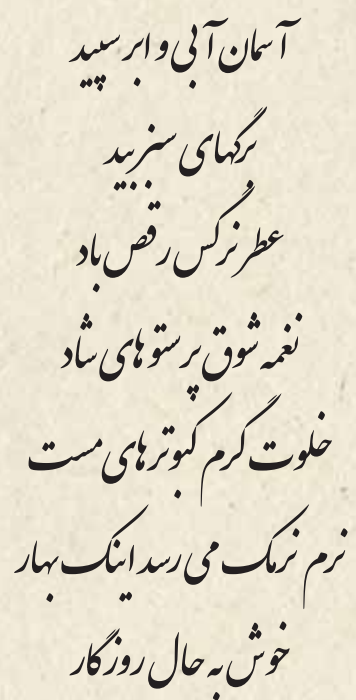 آسمان آبی و ابر سپید
برگهای سبز بید
عطر نرگس رقص باد
نغمه شوق پرستوهای شاد
خلوت گرم کبوترهای مست
نرم نرمک می رسد اینک بهار
خوش به حال روزگار